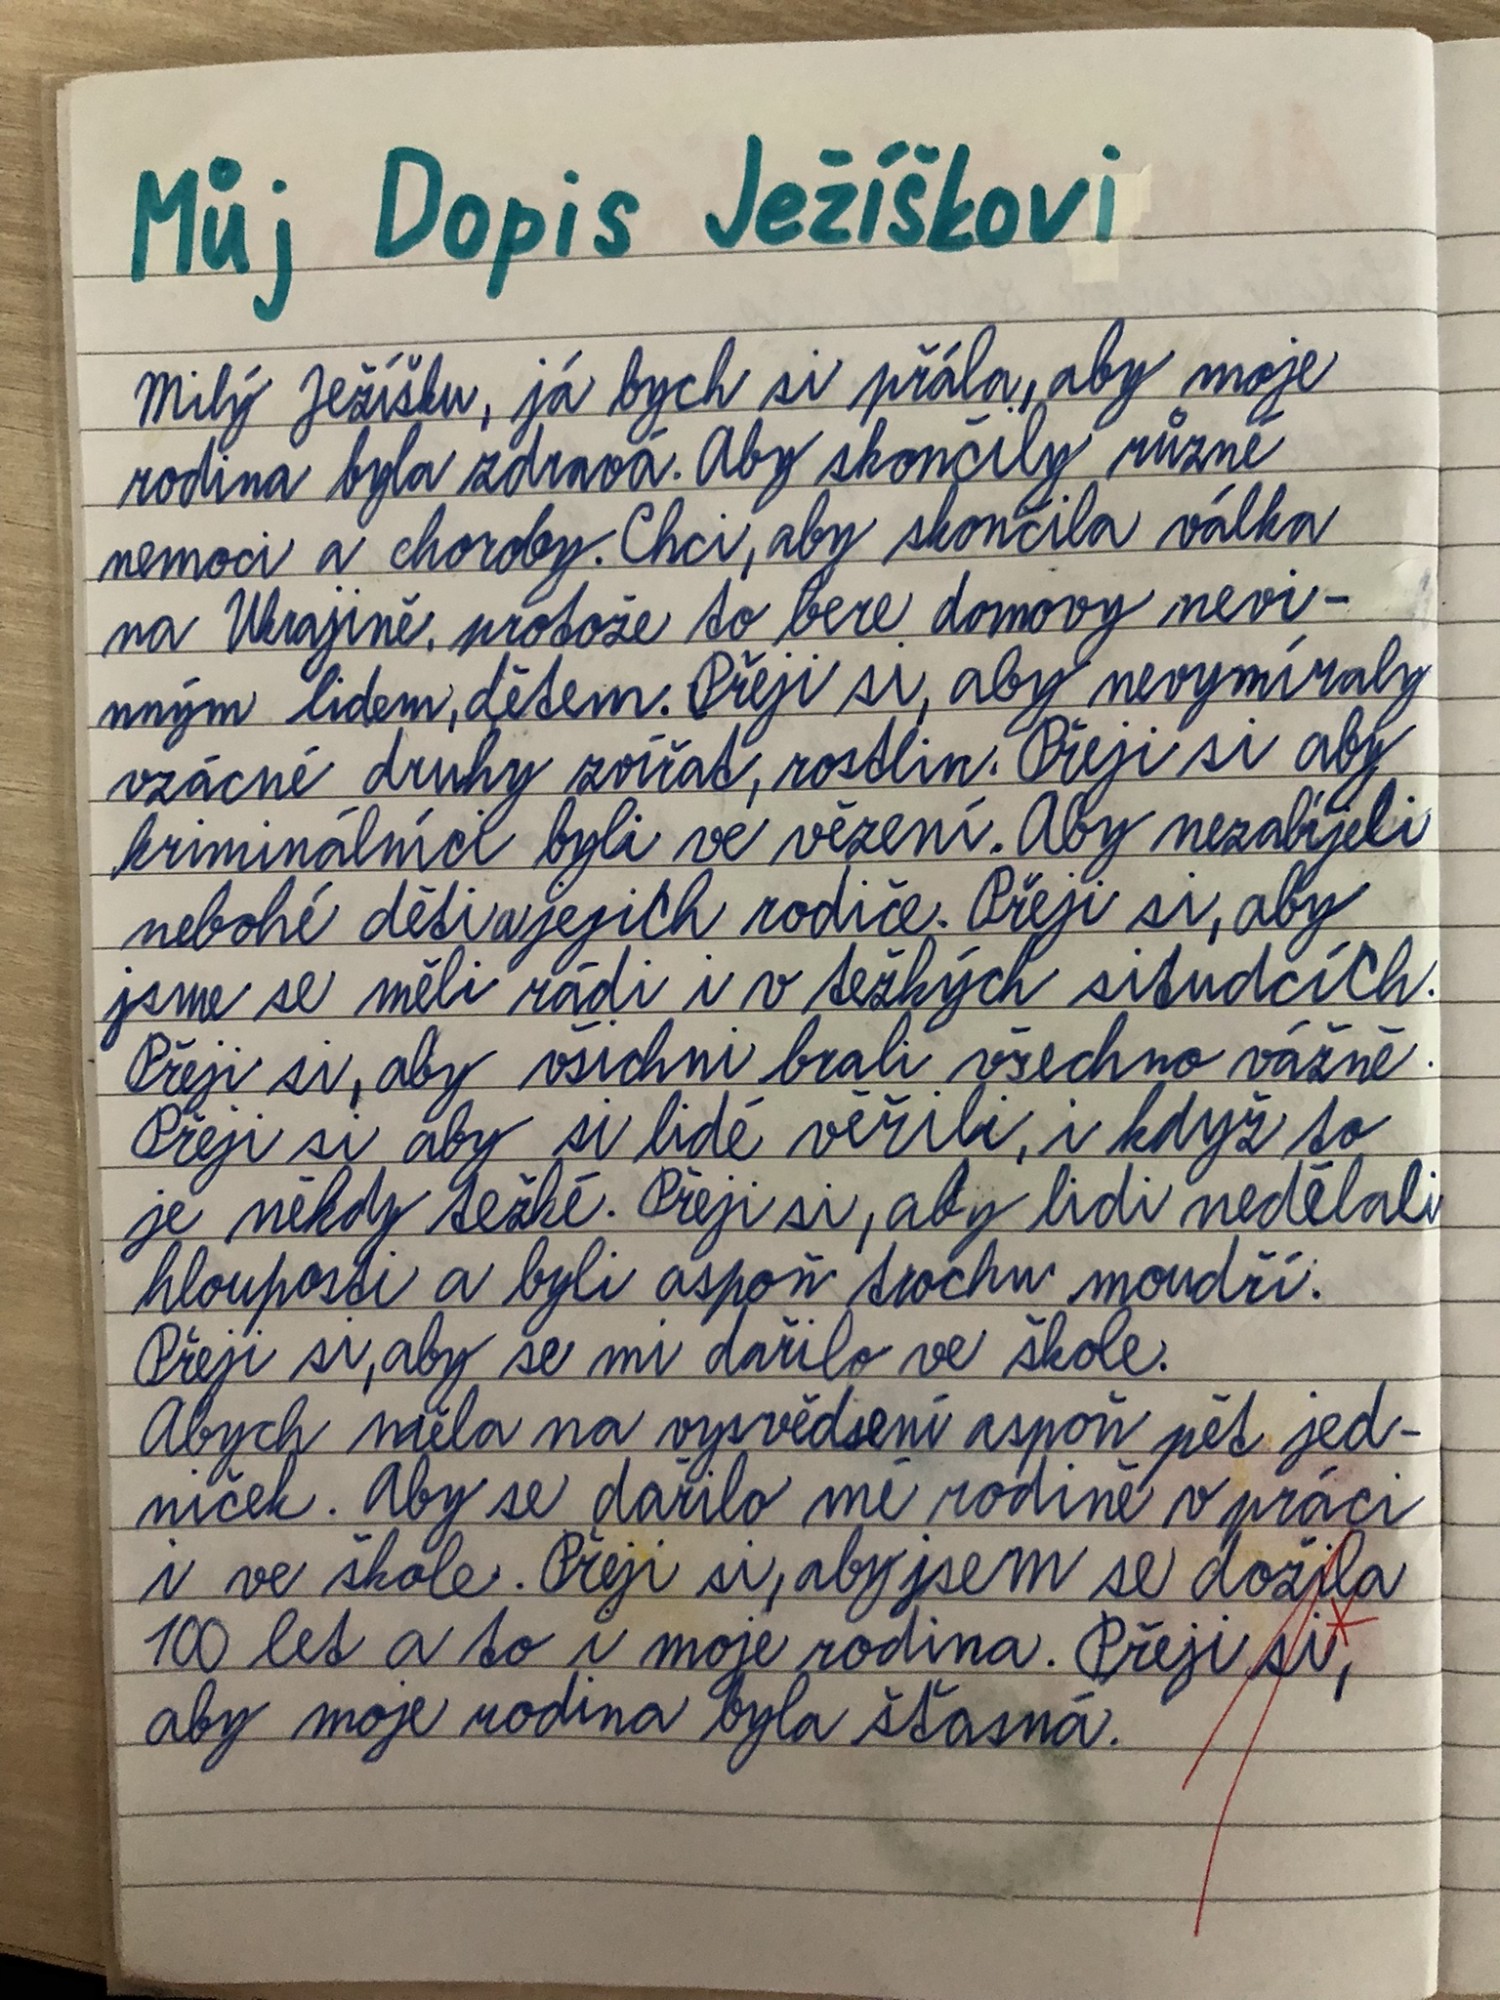 Můj Dopis Ježíškovi
Milý Ježíšku, já bych si přála, aby moje
rodina byla zdravá. Aby skončily různé
nemoci a choroby. Chci, aby skončila válka
na Ukrajině, protože to bere domovy nevi-
nným lidem, dětem. Přeji si, aby nevymíraly
vzácné druhy zvířat, rostlin. Přeji si aby
kriminálníci byli ve vězení. Aby nezabíjeli
nebohé děti a jejich rodiče. Přeji si, aby
jsme se měli rádi i v težkých situacích.
Přeji si, aby všichni brali všechno vážně.
Přeji si aby si lidé věřili, i když to
je někdy težké. Přeji si, aby lidi nedělali
hlouposti a byli aspoň trochu moudří.
Přeji si, aby se mi dařilo ve škole.
Abych měla na vysvědsení aspoň pět jed-
niček. Aby se dařilo mé rodině v práci
i ve škole. Přeji si, aby jsem se dožila
100 let a to i moje rodina. Přeji si,
aby moje rodina byla šťasná.